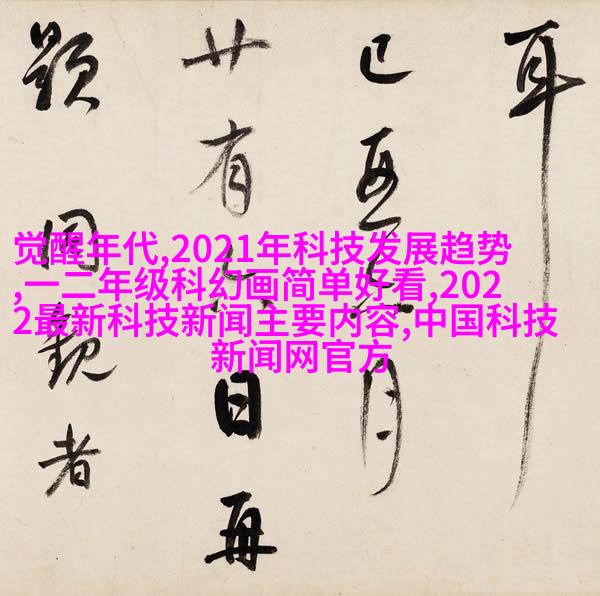 觉醒年代,2021年科技发展趋势
,一二年级科幻画简单好看,202
2最新科技新闻主要内容,中国科技
新闻网官方
耳
己亥月
廿有日再
題同觀者